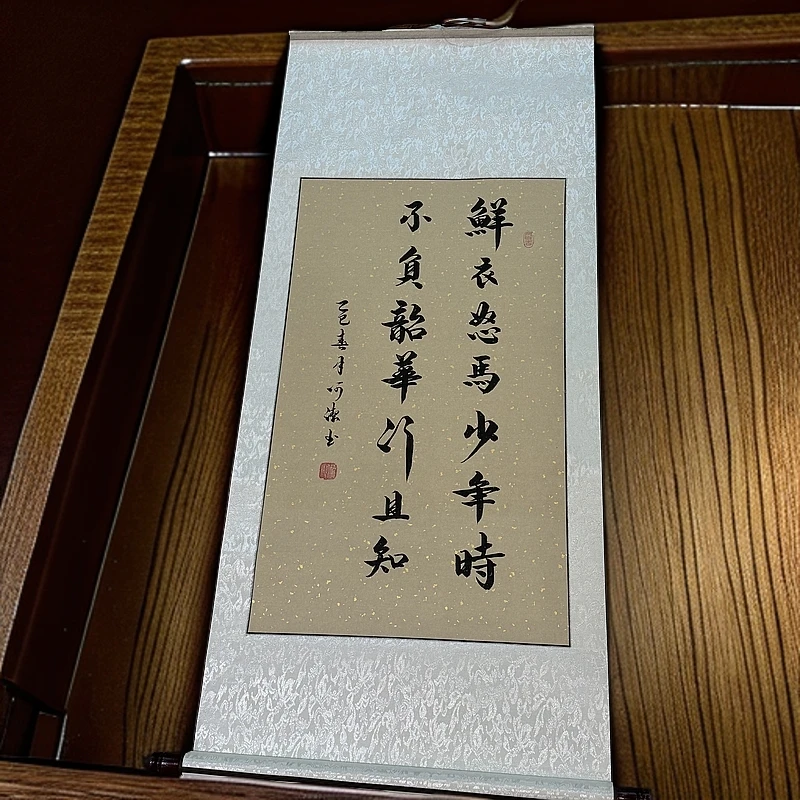 鮮衣怒馬少年時
不負韶華行且知
乙巳春月